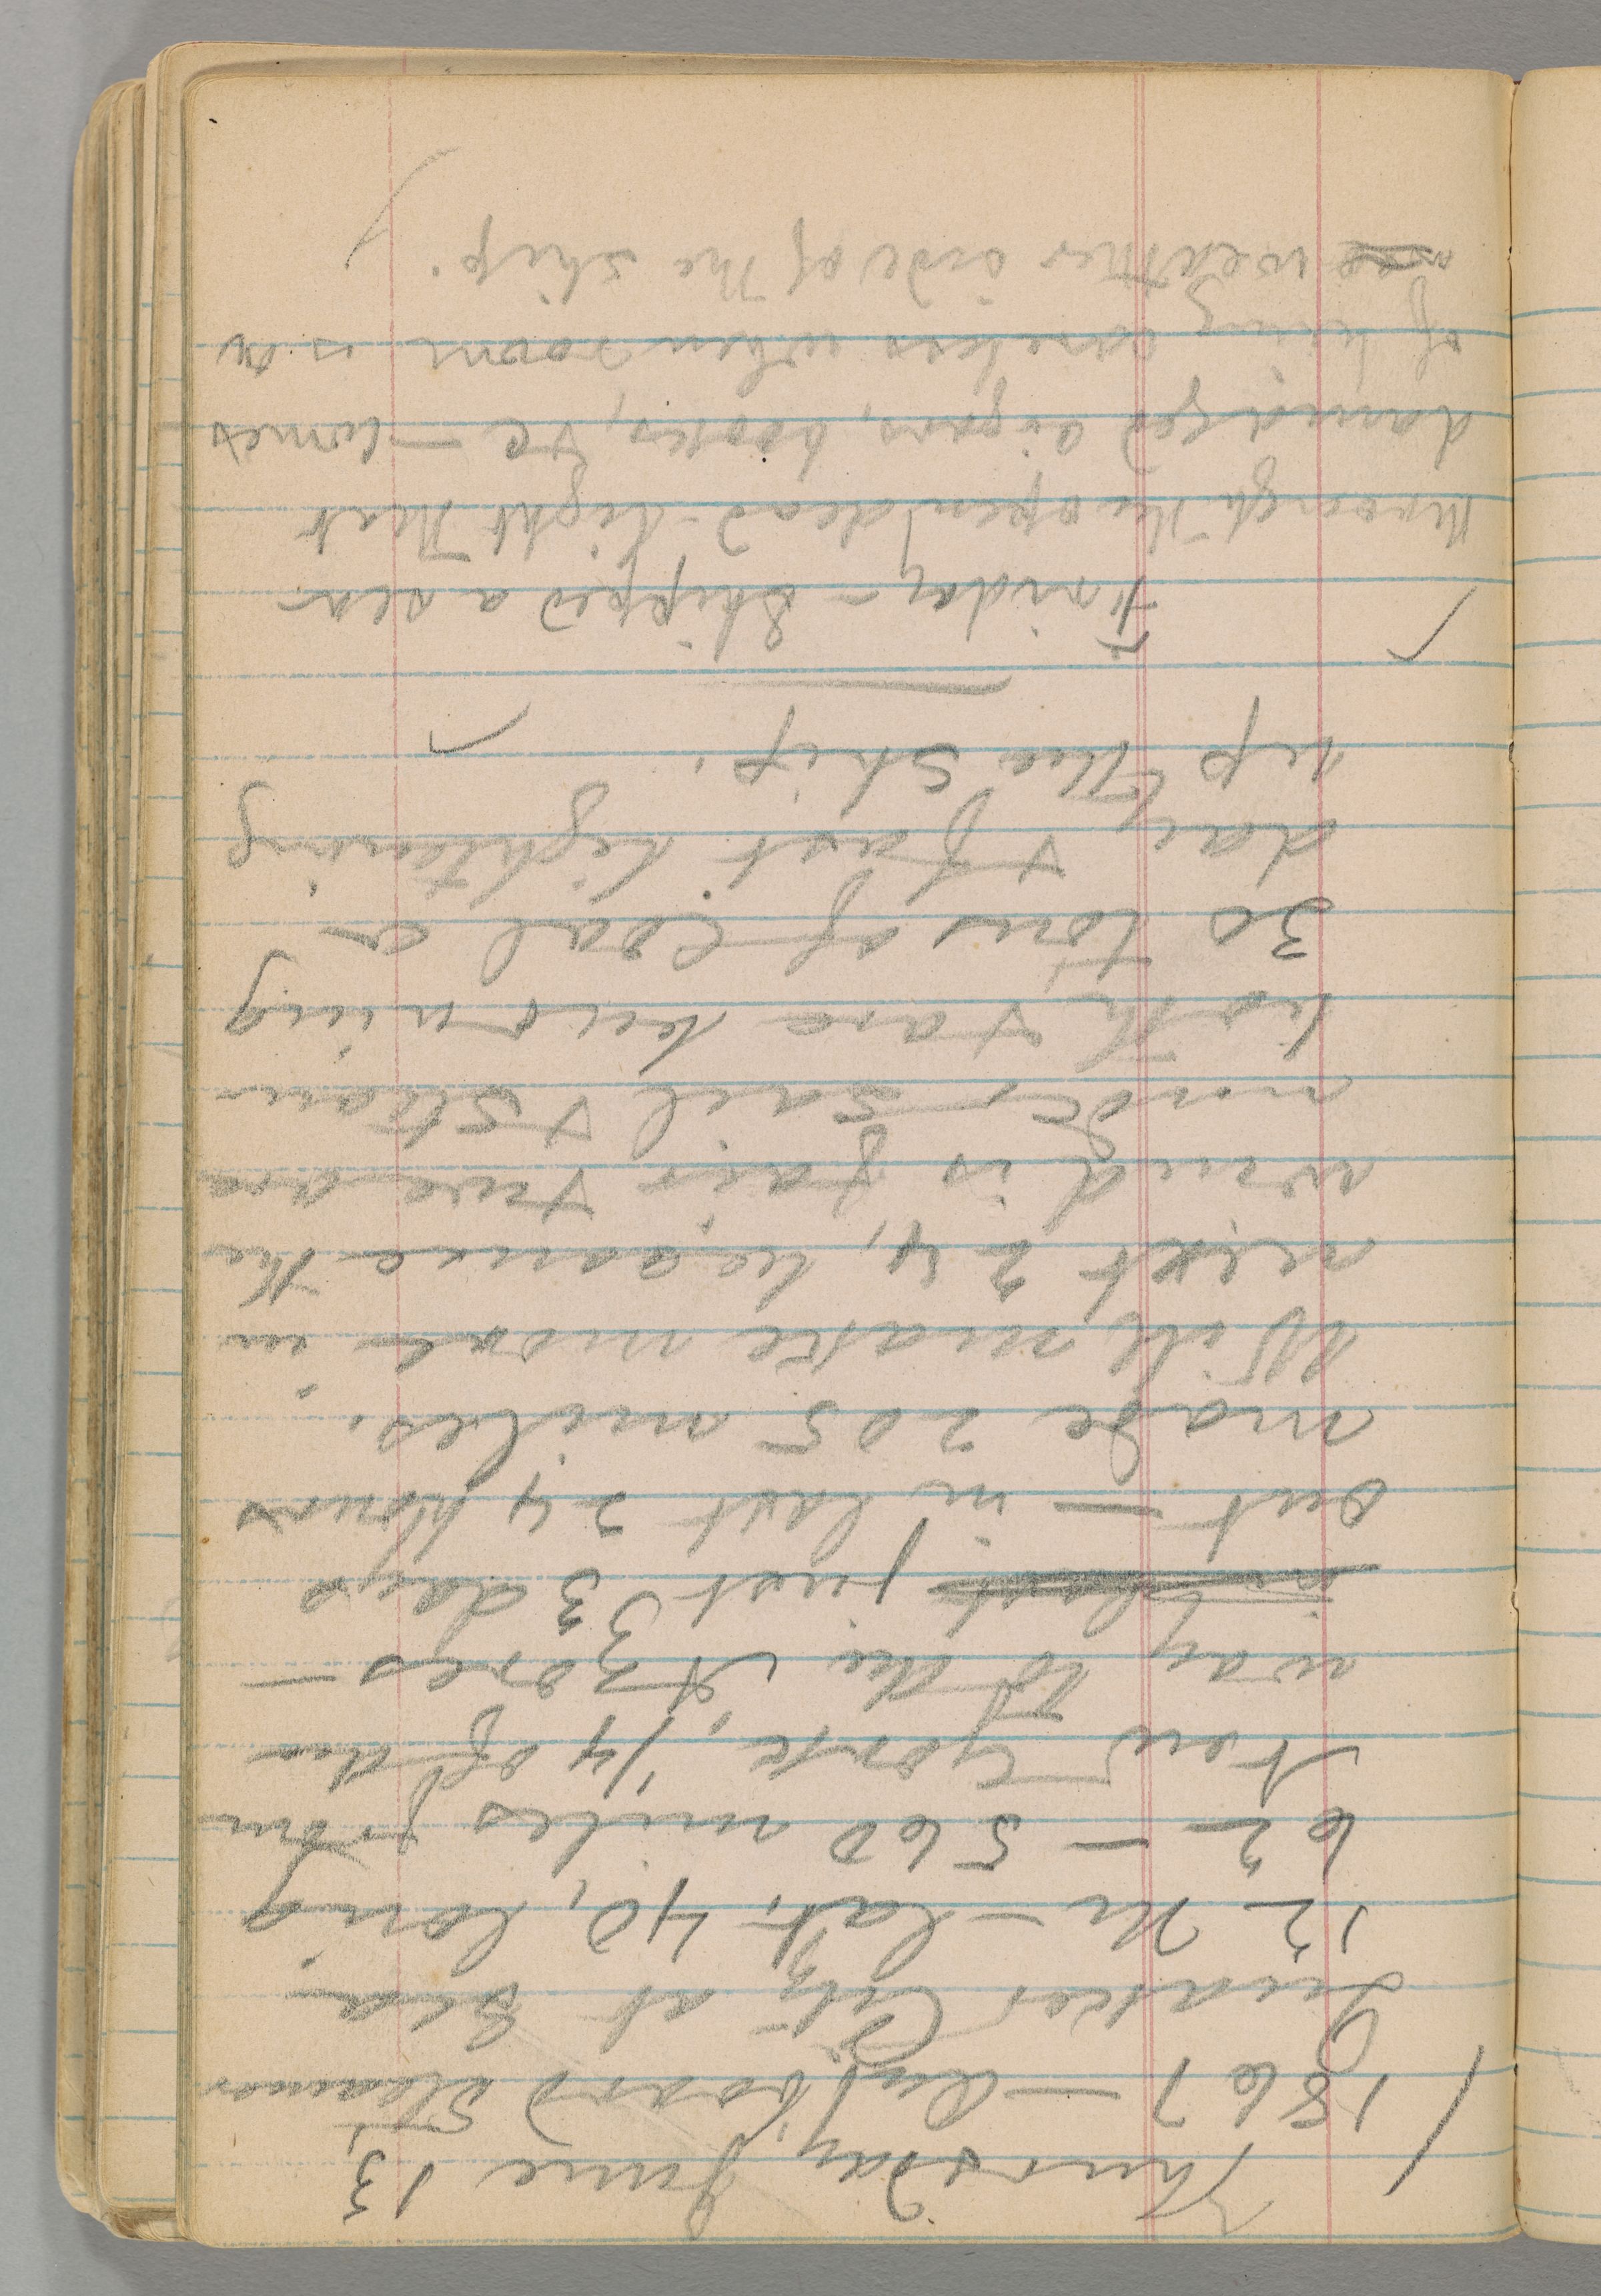 Thursday, June 13,
1867 — On board Steamer
Quaker City at Sea
12 M — lat. 40, long
62 — 560 miles from
New York, 1/4 of the
way to the Azores —
just 3 days
out — in last 24 hours
made 205 miles.
Will make more in
next 24, because the
wind is fair & we are
under sail & steam
both & are burning
30 tons of coal a
day & fast lightening
up the ship.
Friday — Shipped a sea
through the open dead-light that
damaged cigars, books, &c — comes
of being careless when room is on
weather side of the ship.